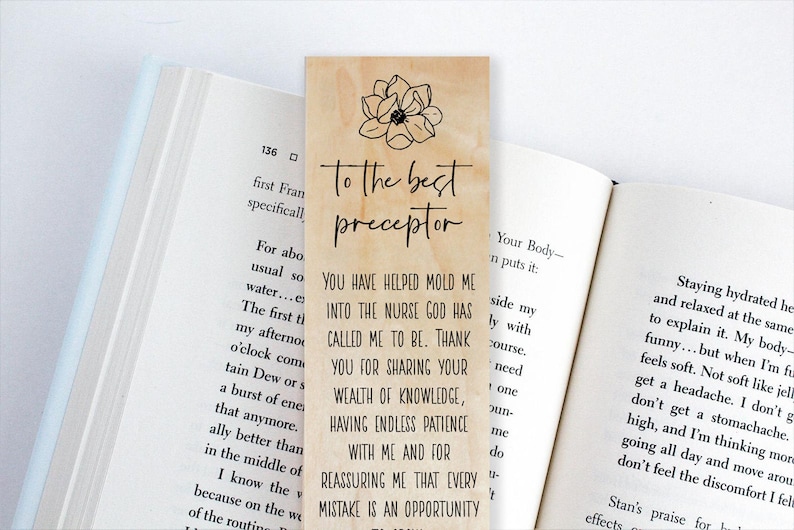 136
first Fran
specifically
For abou
usual so
water…ex
The first th
my afternoo
o'clock come
tain Dew or s
a burst of ener
that anymore.
ally better than
in the middle of
I know the v
because on the we
of the routine. F
to the best
preceptor
You have helped mold me
into the nurse God has
called me to be. Thank
you for sharing your
wealth of knowledge,
having endless patience
with me and for
reassuring me that every
mistake is an opportunity
Your Body—
n puts it:
side my
y with
course.
need
one
oun-
Staying hydrated he
and relaxed at the same
to explain it. My body—
funny…but when I'm f
feels soft. Not soft like jelly
get a headache. I don't g
don't get a stomachache.
high, and I'm thinking more
going all day and move aroun
don't feel the discomfort I fel
Stan's praise for h
effects o